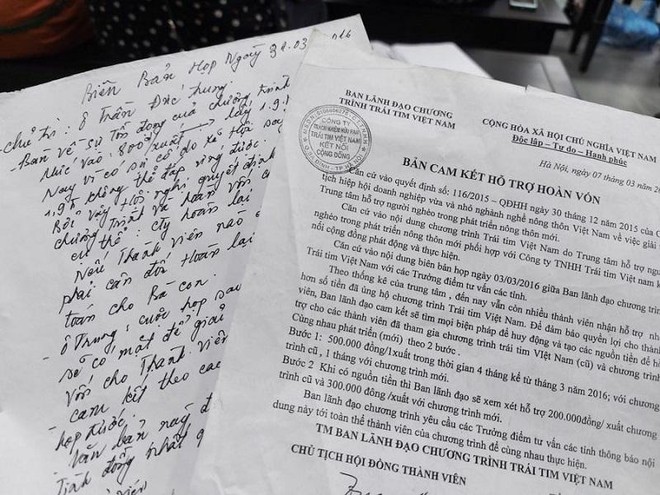 Biên Bản Họp Ngày
- Chủ trì: ô Trần Đức Trung.
- Bàn về sự tồn đọng của chương trình
Nức vào: 800/xuất → lấy 1.9
Nay vì có sự cố do xé thịt say
1.9 không thể đáp ứng được.
Bởi vậy Hội nghị quyết định
chương Trình và hoàn vốn
cụ thể: cty hoàn lại
Nếu Thành viên nào
phải cân đối Hoàn lại
toán cho Bà con.
- ô Trung: cuộc họp sau
sẽ có mặt để giải
vốn cho Thành viên
- Cam kết theo
họp trước.
- văn bản này
Tính đồng nhất
BAN LÃNH ĐẠO CHƯƠNG
TRÌNH TRÁI TIM VIỆT NAM
CỘNG HÒA XÃ HỘI CHỦ NGHĨA VIỆT NAM
Độc lập – Tự do – Hanh phúc
CÔNG TY
TRÁCH NHIỆM HỮU HẠN
TRÁI TIM VIỆT NAM
KẾT NỐI
CỘNG ĐỒNG
Hà Nội, ngày 07 tháng 03 năm
BẢN CAM KẾT HỖ TRỢ HOÀN VỐN
Căn cứ vào quyết định số: 116/2015 – QĐHH ngày 30 tháng 12 năm 2015 của
tịch hiệp hội doanh nghiệp vừa và nhỏ nghành nghề nông thôn Việt Nam về việc giải
Trung tâm hỗ trợ người nghèo trong phát triển nông thôn mới.
Căn cứ vào nội dung chương trình Trái tim Việt Nam do Trung tâm hỗ trợ
nghèo trong phát triển nông thôn mới phối hợp với Công ty TNHH Trái tim Việt Nam
nối cộng đồng phát động và thực hiện.
Căn cứ vào nội dung biên bản họp ngày 03/03/2016 giữa Ban lãnh đạo chương
Trái tim Việt Nam với các Trưởng điểm tư vấn các tỉnh.
Theo thống kê của trung tâm , đến nay vẫn còn nhiều thành viên nhận hỗ trợ
hơn số tiền đã ủng hộ chương trình Trái tim Việt Nam. Để đảm bảo quyền lợi cho thành
viên, Ban lãnh đạo cam kết sẽ tìm mọi biện pháp để huy động và tạo các nguồn tiền để
trợ cho các thành viên đã tham gia chương trình trái tim Việt Nam (cũ) và chương
Cùng nhau phát triển (mới) theo 2 bước .
Bước 1: 500.000 đồng/1xuất trong thời gian 4 tháng kể từ tháng 3 năm 2016; với chương
trình cũ , 1 tháng với chương trình mới.
Bước 2 Khi có nguồn tiền thì Ban lãnh đạo sẽ xem xét hỗ trợ 200.000đồng/ xuất chương
trình cũ và 300.000 đồng /xuất với chương trình mới.
Ban lãnh đạo chương trình yêu cầu các Trưởng điểm tư vấn các tỉnh thông báo nội
dung này tới toàn thể thành viên của chương trình để cùng nhau thực hiện.
TM BAN LÃNH ĐẠO CHƯƠNG TRÌNH TRÁI TIM VIỆT NAM
CHỦ TỊCH HỘI ĐỒNG THÀNH VIÊN